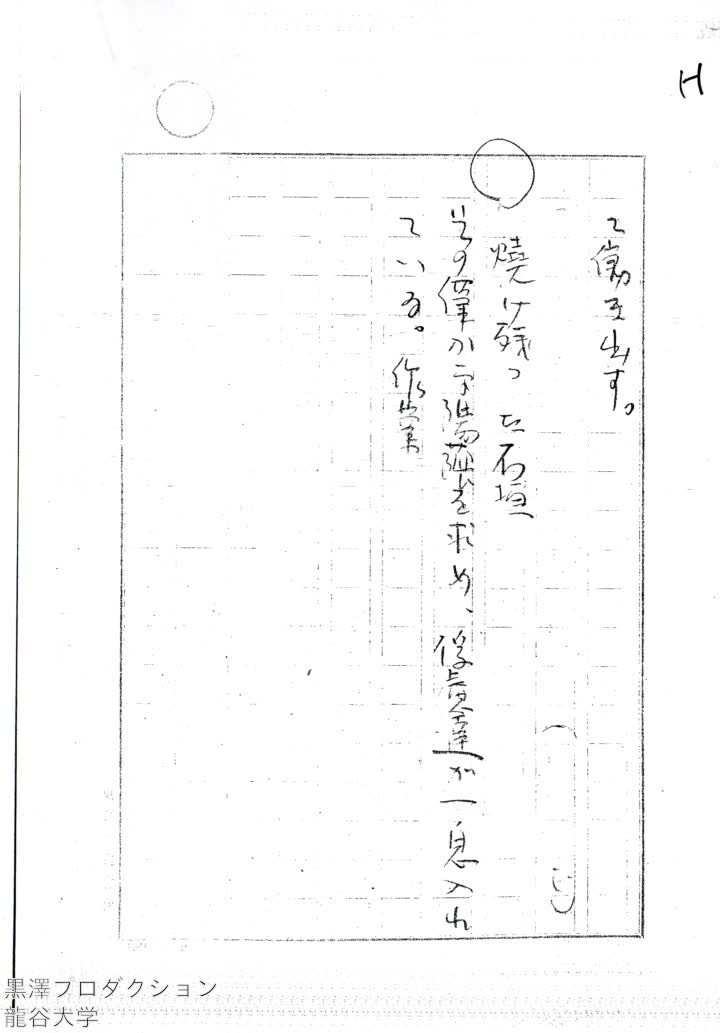 H
て働き出す。
燒け残った石垣
その僅かな陽蔭を求め、俘虜達が一息入れ
ている。作業
黒澤プロダクション
龍谷大学